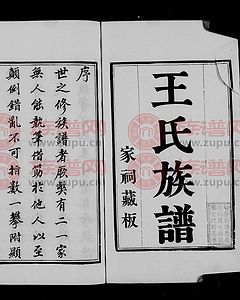 王氏族譜
家祠藏板
序
世之修族譜者殷矣有二一家
無人能執筆借助於他人以至
顛倒錯亂不可指數一攀附顯
www.zupu.cn